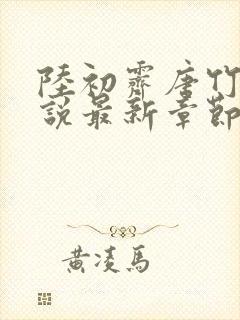 陸初霽唐竹
說最新章節
黃凌馬